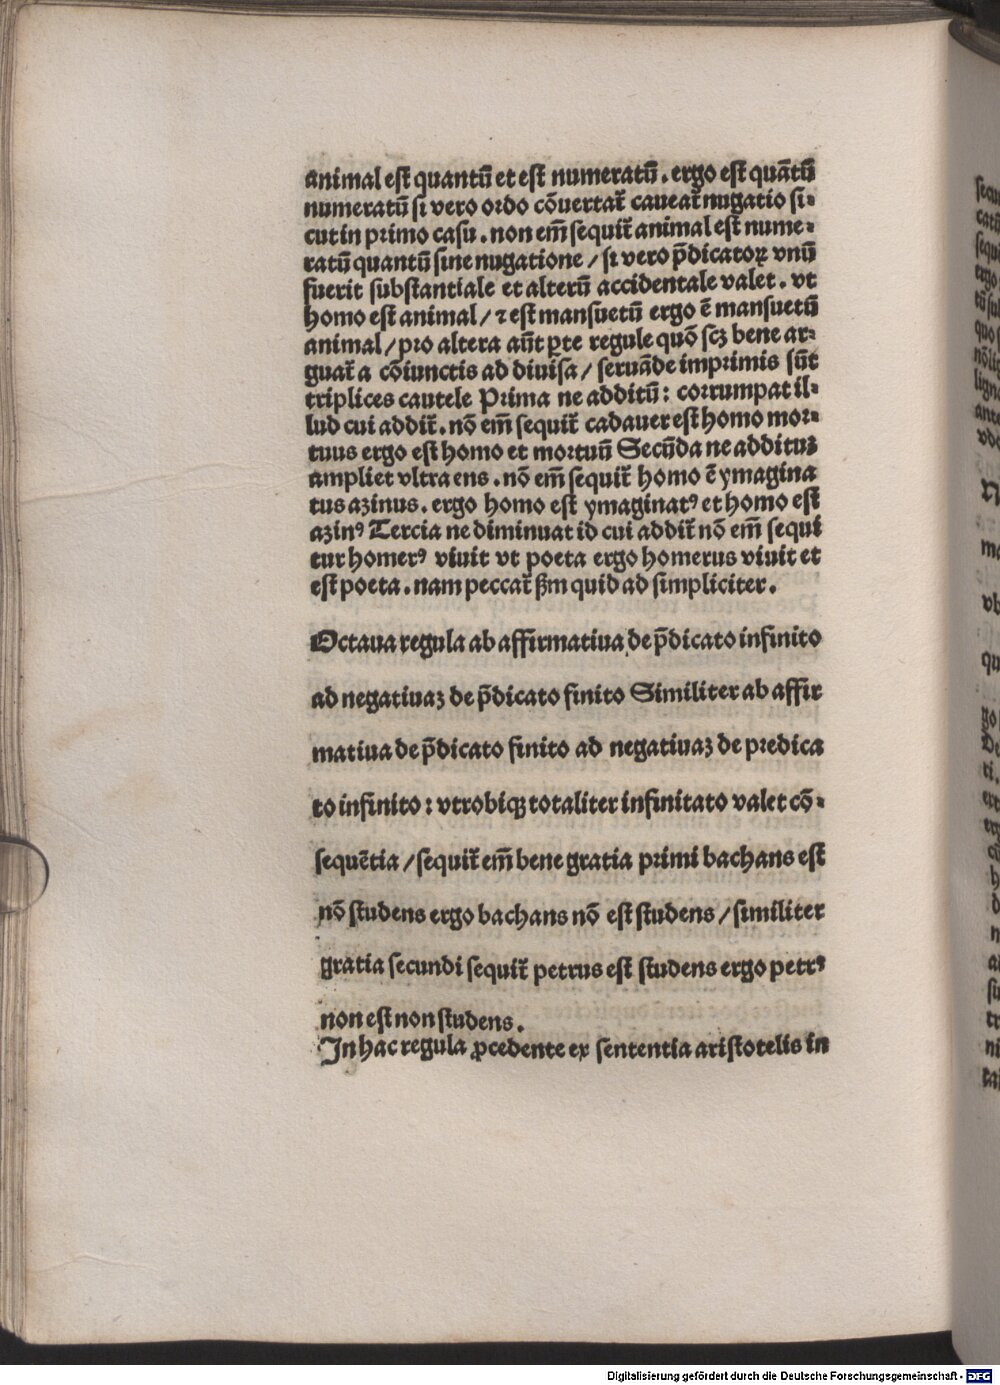 animal est quantū et est numeratū. ergo est quātū
numeratū si vero ordo cōuertat᷑ caueat᷑ nugatio si-
cut in primo casu. non em̄ sequit᷑ animal est nume-
ratū quantū sine nugatione / si vero p̄dicatoꝝ vnū
fuerit substantiale et alterū accidentale valet. vt
homo est animal / ⁊ est mansuetū ergo ē mansuetū
animal / pro altera aūt ꝑte regule quō scꝫ bene ar-
guat᷑ a cōiunctis ad diuisa / seruāde imprimis sūt
triplices cautele Prima ne additū: corrumpat il-
lud cui addit᷑. nō em̄ sequit᷑ cadauer est homo mor-
tuus ergo est homo et mortuū Secūda ne addituꝫ
ampliet vltra ens. nō em̄ sequit᷑ homo ē ymagina
tus azinus. ergo homo est ymaginatꝰ et homo est
azinꝰ Tercia ne diminuat id cui addit᷑ nō em̄ sequi
tur homerꝰ viuit vt poeta ergo homerus viuit et
est poeta. nam peccat᷑ ẜm quid ad simpliciter.
Octaua regula ab affirmatiua de p̄dicato infinito
ad negatiuaꝫ de p̄dicato finito Similiter ab affir
matiua de p̄dicato finito ad negatiuaꝫ de predica
to infinito: vtrobiqꝫ totaliter infinitato valet cō-
sequētia / sequit᷑ em̄ bene gratia primi bachans est
nō studens ergo bachans nō est studens / similiter
gratia secundi sequit᷑ petrus est studens ergo petrꝰ
non est non studens.
In hac regula ꝓcedente ex sententia aristotelis in
Digitalisierung gefördert durch die Deutsche Forschungsgemeinschaft - DFG